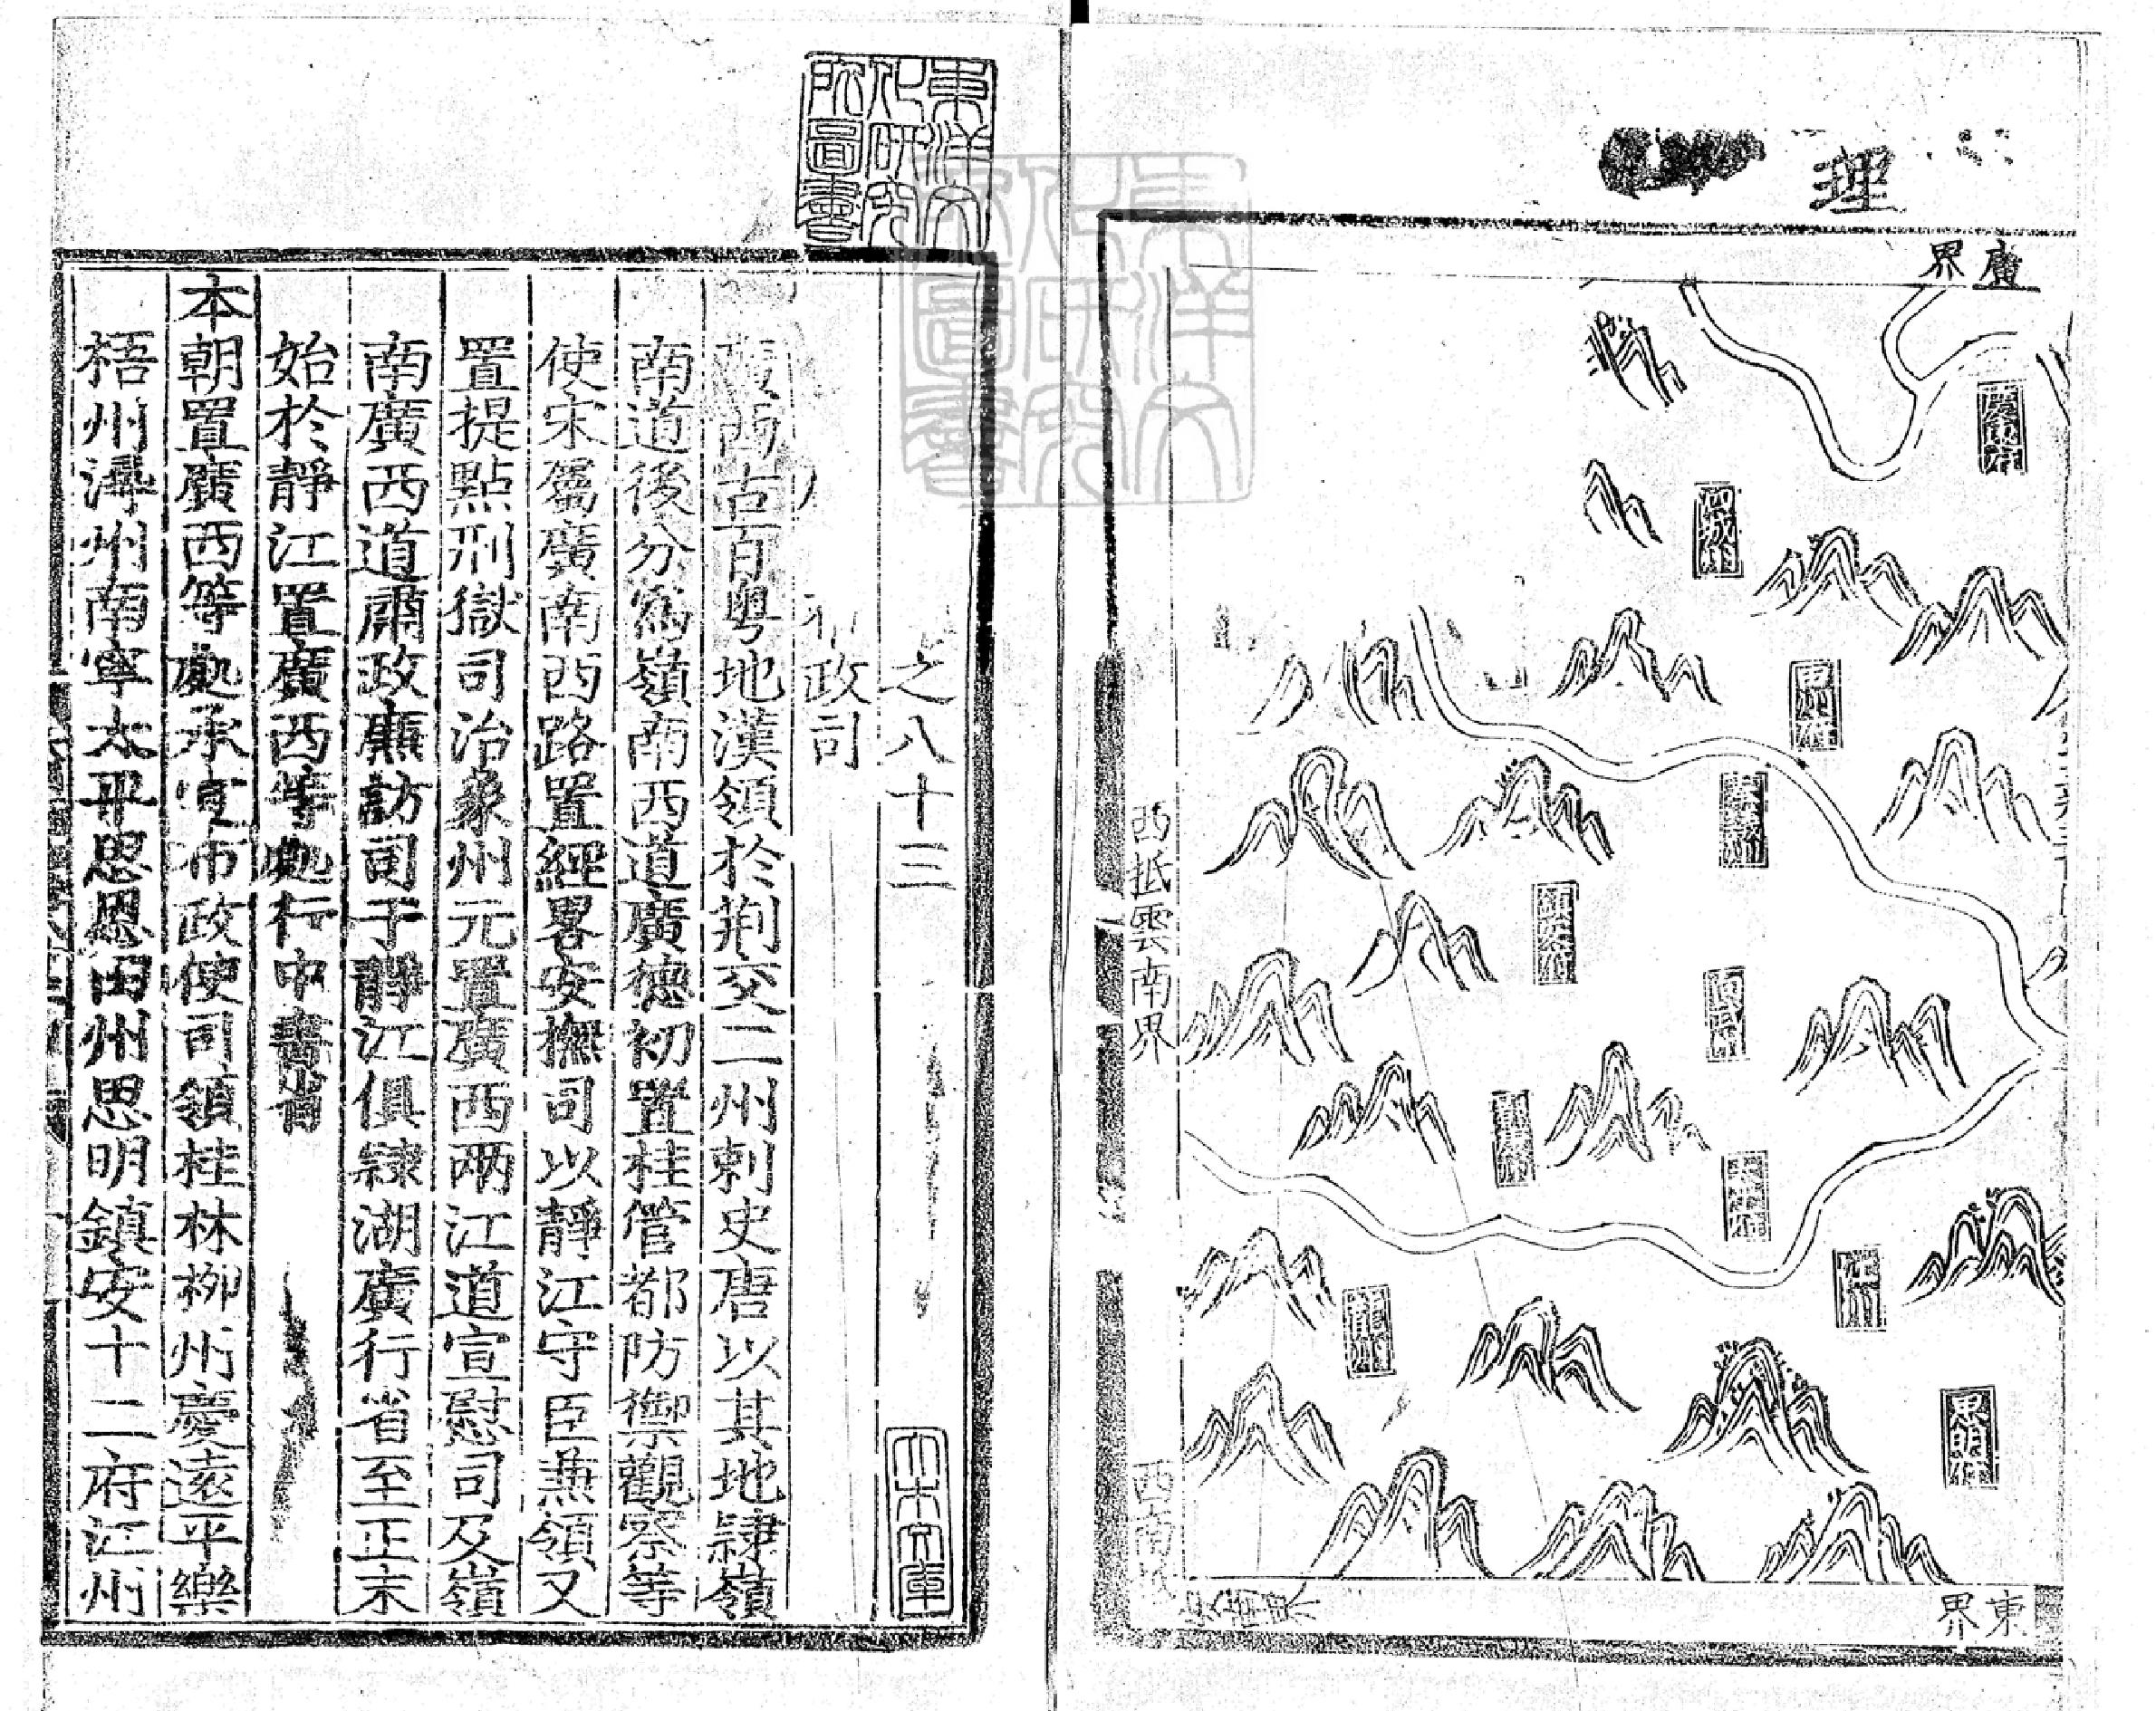 理
廣
界
西抵雲南界
西南抵
東
界
那城州
思明府
龍州
江州
之八十三
政司
廣西古百粤地漢領於荆交二州刺史唐以其地隸嶺
南道後分爲嶺南西道廣德初置桂管都防禦觀察等
使宋屬廣南西路置經畧安撫司以靜江守臣兼領又
置提點刑獄司治象州元置廣西兩江道宣慰司及嶺
南廣西道肅政廉訪司于靜江俱隸湖廣行省至正末
始於靜江置廣西等處行中書省
本朝置廣西等處承宣布政使司領桂林柳州慶遠平樂
梧州潯州南寧太平思恩田州思明鎮安十二府江州
東洋文化研究所圖書
大木文庫